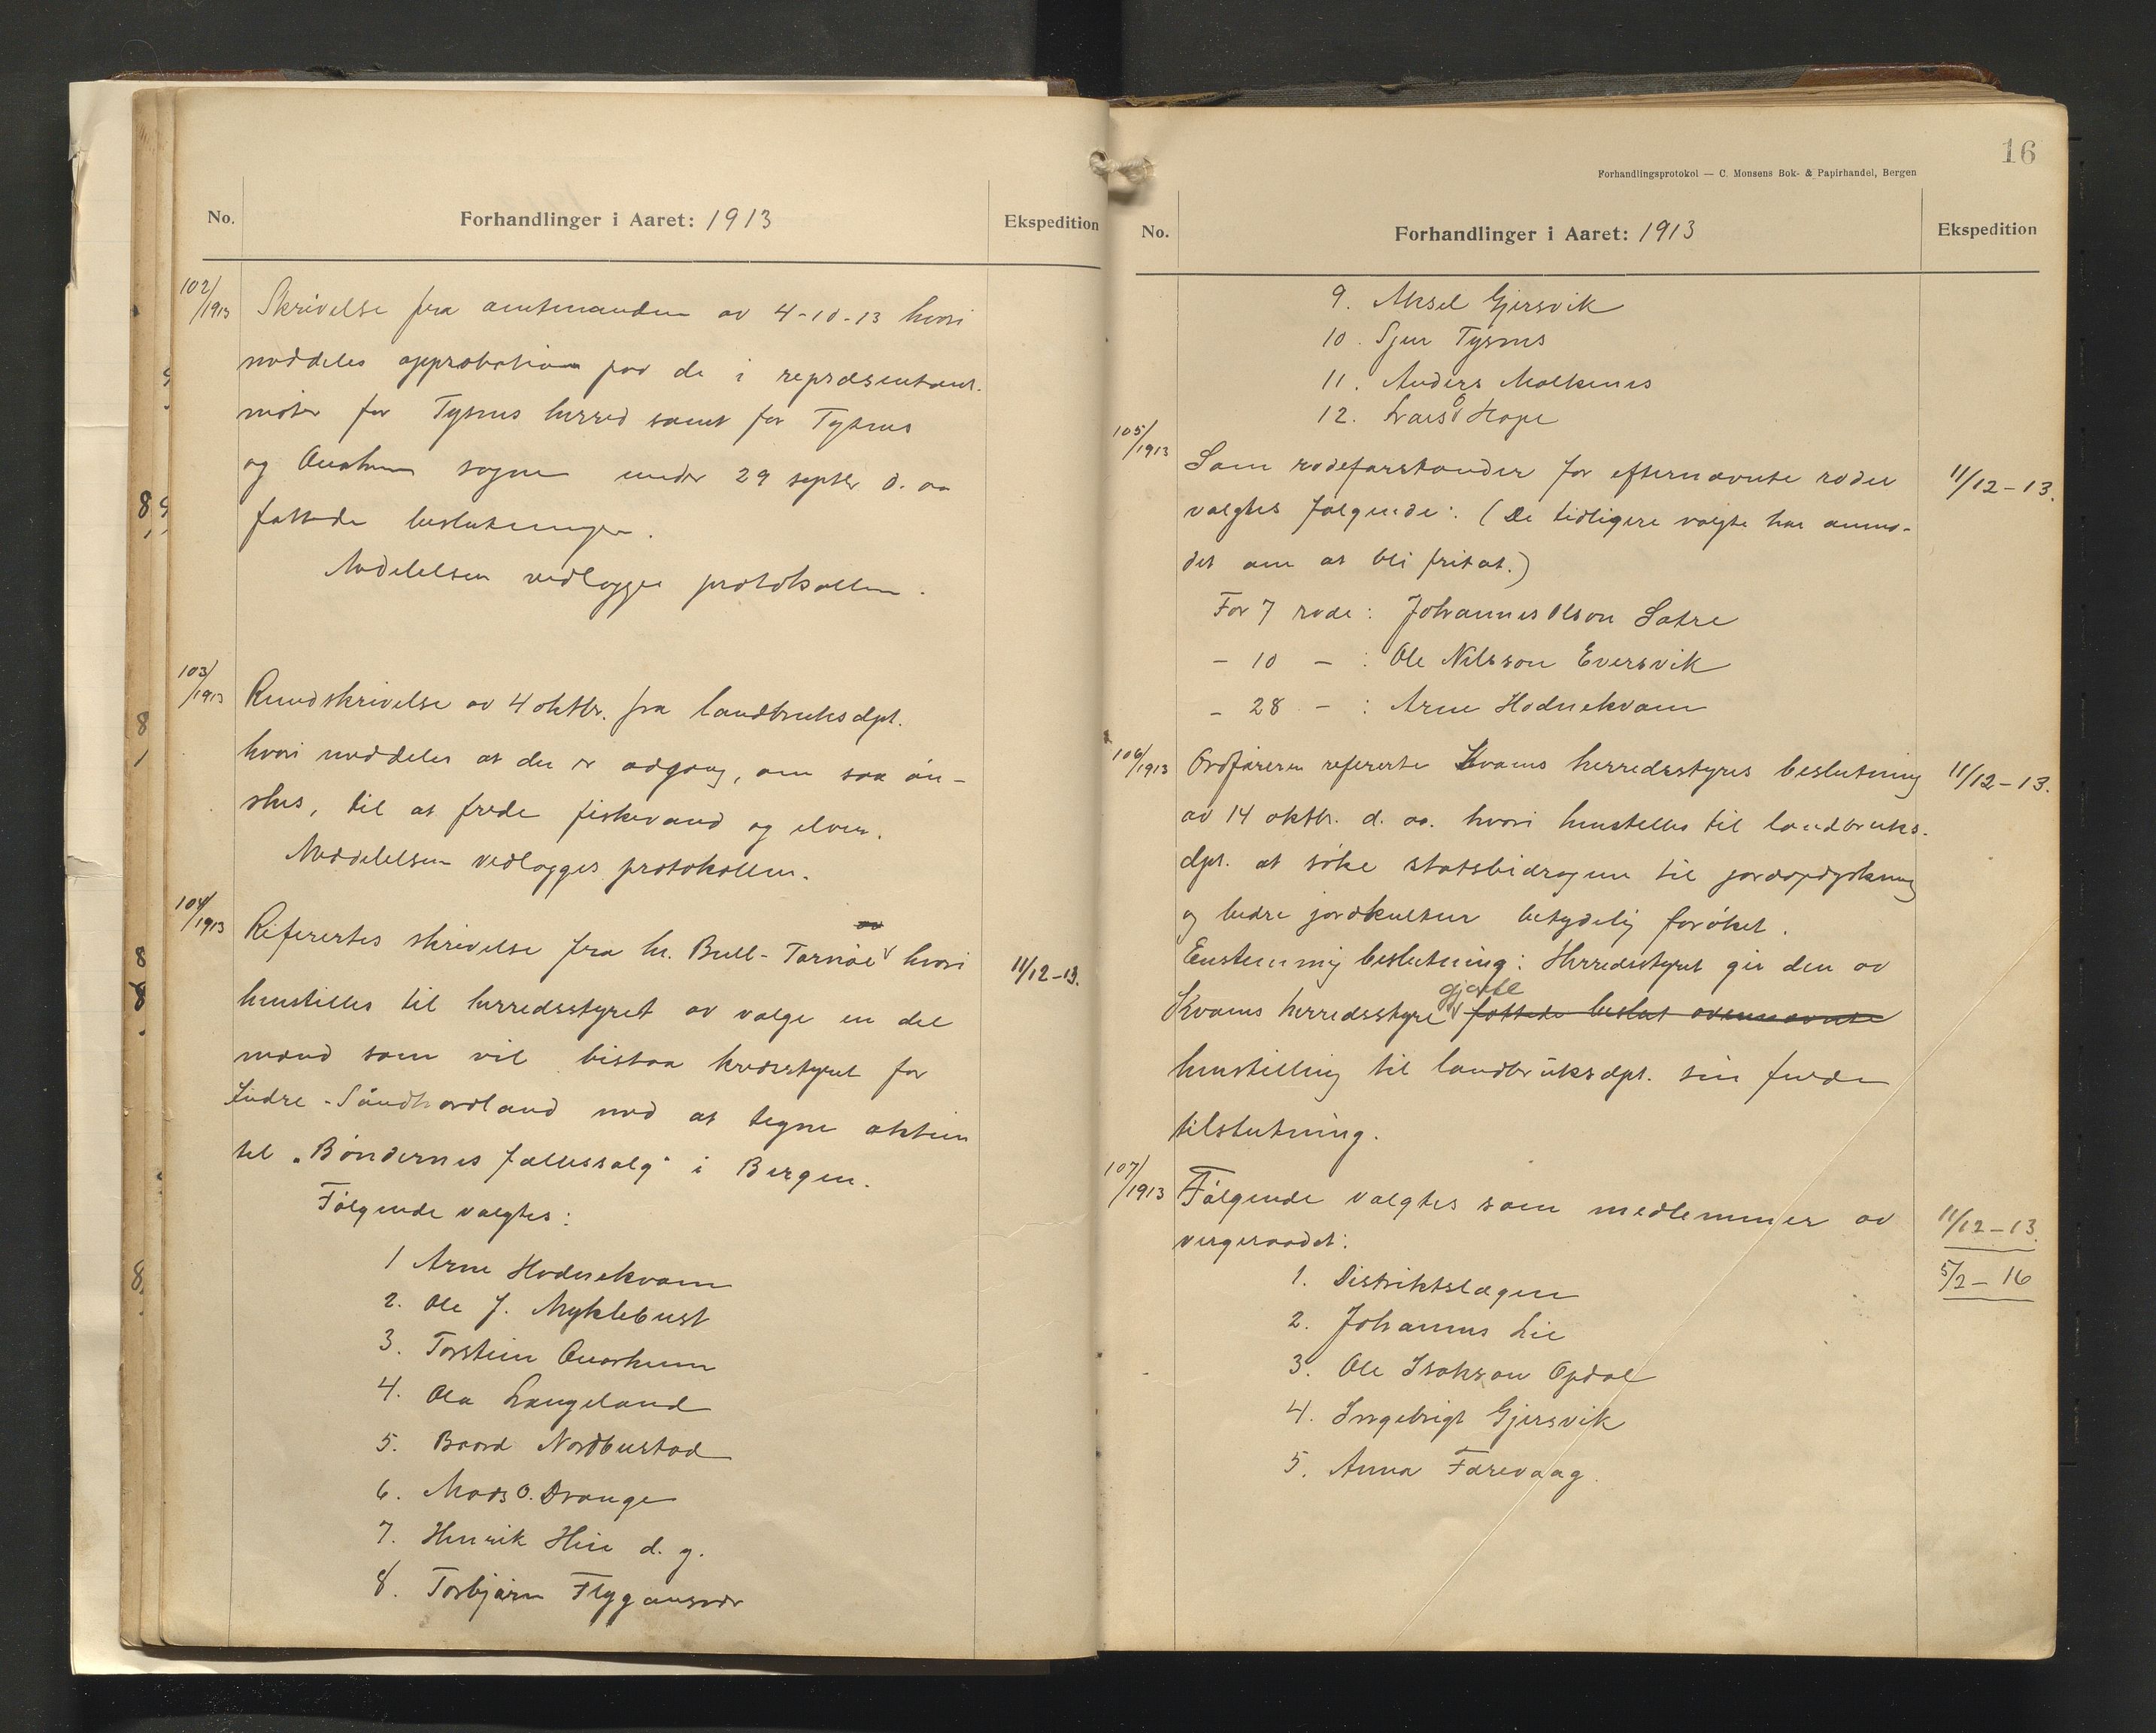 No.
Forhandlinger i Aaret: 1913
Ekspedition
102/1913
Skrivelse fra amtmanden av 4-10-13 hvori
meddeles approbation paa de i repræsentant-
møter for Tysnes herred samt for Tysnes
og Onarheim sogne under 29 septbr d. aa
fattede beslutninger.
Meddelelsen vedlægges protokollen.
103/1913
Rundskrivelse av 4 oktbr. fra landbruksdpt.
hvori meddeles at der er adgang, om saa øn-
skes, til at frede fiskevand og elver.
Meddelelsen vedlægges protokollen.
104/1913
Refertes skrivelse fra hr. Bull-Tornøe hvori
henstilles til herredsstyret av vælge en del
mænd som vil bistaa kredsstyret for
Indre-Søndhordland med at tegne aktier
til „Bøndernes fællessalg" i Bergen.
11/12-13.
Følgende valgtes:
1 Arne Hodnekvam
2. Ole J. Myklebust
3. Torstein Onarheim
4. Ola Langeland
5. Baard Nordbustad
6. Mads O. Drange
7. Henrik Heie d. y.
8. Torbjørn Flygansvær
16
Forhandlingsprotokol — C. Monsens Bok- & Papirhandel, Bergen
No.
Forhandlinger i Aaret: 1913
Ekspedition
9. Aksel Gjersvik
10. Sjur Tysnes
11. Anders Malkenes
12. Lars O Hope
105/1913
Som rodeforstander for efternævnte roder
valgtes følgende: (De tidligere valgte har anmo-
det om at bli fritat.)
11/12-13.
For 7 rode: Johannes Olson Sætre
- 10 - : Ole Nilsson Eversvik
- 28 - : Arne Hodnekvam
106/1913
Ordføreren refererte Kvams herredsstyres beslutning
av 14 oktbr. d. aa. hvori henstilles til landbruks-
dpt. at søke statsbidragene til jordopdyrkning
og bedre jordkultur betydelig forøket.
11/12-13.
Enstemmig beslutning: Herredsstyret gir den av
gjorte
Kvams herredsstyre fattede beslut ovennævnte
henstilling til landbruksdpt. sin fulde
tilslutning.
107/1913
Følgende valgtes som medlemmer av
vergeraadet:
11/12-13.
5/2-16
1. Distriktslægen
2. Johannes Lie
3. Ole Isakson Opdal
4. Ingebrigt Gjersvik
5. Anna Færevaag.